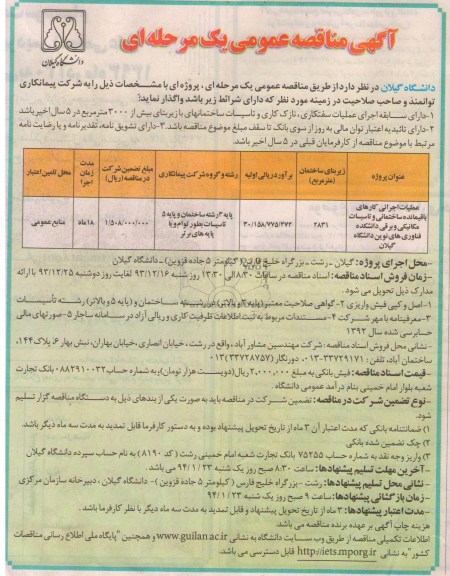 آگهی مناقصه عمومی یک مرحله ای
دانشگاه گیلان
دانشگاه گیلان در نظر دارد از طریق مناقصه عمومی یک مرحله ای، پروژه ای با مشخصات ذیل را به شرکت پیمانکاری
توانمند و صاحب صلاحیت در زمینه مورد نظر که دارای شرائط زیر باشد واگذار نماید؟
۱-دارای سابقه اجرای عملیات سفتکاری، نازک کاری و تاسیسات ساختمانهای با زیربنای بیش از ۳۰۰۰ مترمربع در ۵ سال اخیر باشد
۲-دارای تائیدیه اعتبار توان مالی به روز از سوی بانک تا سقف مبلغ موضوع مناقصه باشد. ۳-دارای تشویق نامه، تقدیرنامه و یا رضایت نامه
مرتبط با موضوع مناقصه از کارفرمایان قبلی در ۵ سال اخیر باشد.
عنوان پروژه | زیربنای ساختمان (مترمربع) | برآورد ریالی اولیه | رشته و گروه شرکت پیمانکاری | مبلغ تضمین شرکت در مناقصه (ریال) | مدت زمان اجرا | محل تامین اعتبار
عملیات اجرائی کارهای باقیمانده ساختمانی و تاسیسات مکانیکی و برقی دانشکده فناوری های نوین دانشگاه گیلان | ۲۸۳۱ | ۳۰/۱۵۸/۷۷۵/۲۷۲ | پایه ۴ رشته ساختمان و پایه ۵ تاسیسات بطور توام و یا پایه های برتر | ۱/۵۰۸/۰۰۰/۰۰۰ | ۱۸ماه | منابع عمومی
-محل اجرای پروژه: گیلان -رشت - بزرگراه خلیج فارس (کیلومتر ۵ جاده قزوین) - دانشگاه گیلان
-زمان فروش اسناد مناقصه: اسناد مناقصه در ساعات ۸:۳۰ الی ۱۳:۳۰ روز شنبه ۹۳/۱۲/۱۶ لغایت روز دوشنبه ۹۳/۱۲/۲۵ با ارائه
مدارک ذیل تحویل می شود.
۱-اصل و کپی فیش واریزی ۲-گواهی صلاحیت معتبر (پایه ۴ و بالاتر) در رشته ساختمان و (پایه ۵ و بالاتر) رشته تأسیسات
۳-معرفینامه با مهر شرکت ۴-مستندات مربوط به ثبت اطلاعات ظرفیت کاری و ریالی آزاد در سامانه ساجار ۵-صورتهای مالی
حسابرسی شده سال ۱۳۹۲
-نشانی محل فروش اسناد مناقصه: شرکت مهندسین مشاور آپاد، واقع در رشت، خیابان انصاری، خیابان بهاران، نبش بهار ۶، پلاک ۱۴۴،
ساختمان آپاد، تلفن: ۳۳۷۲۹۱۷۱-۰۱۳، دورنگار (۰۱۳۳۳۷۲۸۷۵۷)
-قیمت اسناد مناقصه: فیش بانکی به مبلغ ۲،۰۰۰،۰۰۰ ریال (دویست هزار تومان) به شماره حساب ۰۸۸۲۹۱۰۰۳۲ بانک تجارت
شعبه بلوار امام خمینی بنام درآمد عمومی دانشگاه.
-نوع تضمین شرکت در مناقصه: تضمین شرکت در مناقصه باید به صورت یکی از بندهای ذیل به دستگاه مناقصه گزار تسلیم
شود.
۱) ضمانتنامه بانکی که مدت اعتبار آن ۳ ماه از تاریخ تحویل پیشنهاد بوده و به دستور کارفرما قابل تمدید به مدت سه ماه دیگر باشد.
۲) چک تضمین شده بانکی
۳) واریز وجه نقد به شماره حساب ۷۵۲۵۵ بانک تجارت شعبه امام خمینی رشت (کد ۸۱۹۰) به نام حساب سپرده دانشگاه گیلان
-آخرین مهلت تسلیم پیشنهادها: ساعت ۸:۳۰ صبح روز یک شنبه ۹۴/۱/۲۳ می باشد.
-نشانی محل تسلیم پیشنهادها: رشت -بزرگراه خلیج فارس (کیلومتر ۵ جاده قزوین)- دانشگاه گیلان، دبیرخانه سازمان مرکزی
-زمان بازگشائی پیشنهادها: ساعت ۹ صبح روز یک شنبه ۹۴/۱/۲۳
-مدت اعتبار پیشنهادها: ۳ ماه از تاریخ تحویل پیشنهاد و قابل تمدید به مدت سه ماه دیگر با نظر کارفرما باشد.
هزینه چاپ آگهی بر عهده برنده مناقصه می باشد.
اطلاعات تکمیلی مناقصه از طریق وب سایت دانشگاه به نشانی www.guilan.ac.ir و همچنین "پایگاه ملی اطلاع رسانی مناقصات
کشور" به نشانی http://iets.mporg.ir قابل دسترسی می باشد.